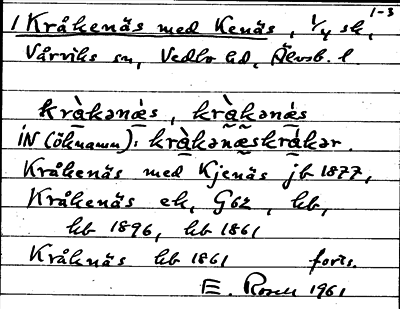 1-3
1 Kråkenäs med Kenäs, 1/4 sk,
Vårviks sn, Vedbo hd, Älvsb. l.
kràkənæ̀s, kràkənæ̀s
iN (öknamn): kràkənæskràkər.
Kråkenäs med Kjenäs jb 1877,
Kråkenäs ek, Gbz, hb,
hb 1896, hb 1861
Kråknäs hb 1861 forts.
E. Rosell 1961